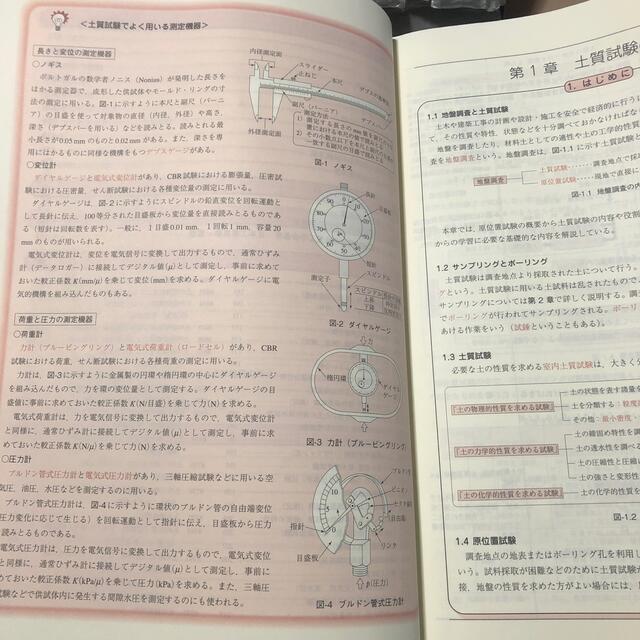 <土質試験でよく用いる測定機器>
長さと変位の測定機器
○ノギス
ポルトガルの数学者ノニス(Nonius)が発明した長さを
はかる測定器で、成形した供試体やモールド・リングの寸
法の測定に用いる。図-1に示すように本尺と副尺(バーニ
ア)の目盛を使って対象物の直径(内径、外径)や高さ、
深さ(デプスバーを用いる)などを読みとる。読みとれる最
小長さが0.05 mmのものと0.02 mmがある。また、深さを専
用にはかるものに同様な機構をもつデプスゲージがある。
○変位計
ダイヤルゲージと電気式変位計があり、CBR試験における膨張量、圧密試
験における圧密量、せん断試験における各種変位量の測定に用いる。
ダイヤルゲージは、図-2に示すようにスピンドルの鉛直変位を回転運動と
して長針に伝え、100等分された目盛板から変位量を直接読みとるものであ
る(短針は回転数を表す)。一般に、1目盛0.01 mm、1回転1 mm、容量20
mmのものが用いられる。
電気式変位計は、変位を電気信号に変換して出力するもので、通常ひずみ
計(データロガー)に接続してデジタル値(μ)として測定し、事前に求めて
おいた較正係数K(mm/μ)を乗じて変位(mm)を求める。ダイヤルゲージに電
気的機構を組み込んだものもある。
荷重と圧力の測定機器
○荷重計
力計(プルービングリング)と電気式荷重計(ロードセル)があり、CBR
試験における荷重、せん断試験における各種荷重の測定に用いる。
力計は、図-3に示すように金属製の円環や楕円環の中心にダイヤルゲージ
を組み込んだもので、力を環の変位量として測定する。ダイヤルゲージの目
盛値に事前に求めておいた較正係数K(N/目盛)を乗じて力(N)を求める。
電気式荷重計は、力を電気信号に変換して出力するもので、電気式変位計
と同様に、通常ひずみ計に接続してデジタル値(μ)として測定し、事前に求
めておいた較正係数K(N/μ)を乗じて力(N)を求める。
○圧力計
ブルドン管式圧力計と電気式圧力計があり、三軸圧縮試験などに用いる空
気圧、油圧、水圧などを測定するのに用いる。
ブルドン管式圧力計は、図-4に示すように環状のブルドン管の自由端変位
(圧力変化に応じて生じる)を回転運動として指針に伝え、目盛板から圧力
を読みとるものである。
電気式圧力計は、圧力を電気信号に変換して出力するもので、電気式変位
計と同様に、通常ひずみ計に接続してデジタル値(μ)として測定し、事前に
求めておいた較正係数K(kPa/μ)を乗じて圧力(kPa)を求める。また、三軸圧
縮試験などで供試体内に発生する間隙水圧を測定するのにも使われる。
内径測定面
スライダー
止ねじ
本尺
デプスの基準面
副尺(バーニア)
外径測定面
図-1 ノギス
長針
目盛板
短針
スピンドル
測定子
図-2 ダイヤルゲージ
力
楕円環
ダイヤルゲージ
力
図-3 力計(プルービングリング)
ブルドン管
ピニオン
セクタ
自由端
リンク
指針
目盛板
p(圧力)
図-4 ブルドン管式圧力計
第1章 土質試験
1. はじめに
1.1 地盤調査と土質試験
土木や建築工事の計画や設計・施工を安全で経済的に行うに
て、その性質や特性、状態などを十分調べておかなければな
地盤を調査したり、材料土としての適性や土の工学的性質
査を地盤調査という。地盤調査は、図-1.1に示すように
地盤調査
土質試験……調査地点で採
原位置試験……現地で直接に
図-1.1 地盤調査の内
本章では、原位置試験の概要から土質試験の内容や役割
からの学習に必要な基礎的な内容を解説している。
1.2 サンプリングとボーリング
土質試験は調査地点より採取された土について行う。
グという。土質試験に用いる土試料は乱されたもので
サンプリングについては第2章で詳しく説明する。調
でボーリングが行われてサンプリングされる。ボーリ
あける作業をいう(試錐ということもある)。
1.3 土質試験
必要な土の性質を求める室内土質試験は、大きく分
「土の物理的性質を求める試験」
土の状態を表す諸量を
土を分類する:粒度試
その他:最小密度・
「土の力学的性質を求める試験」
土の締固め特性を調
土の透水性を調べる
土の圧縮性と圧縮
土の強さと変形性
「土の化学的性質を求める試験」
土の化学的性質
図-1.2
1.4 原位置試験
調査地点の地表またはボーリング孔を利用し
いう。試料採取が困難などのために土質試験が
後、地盤の性質を求めた方がよい場合には、